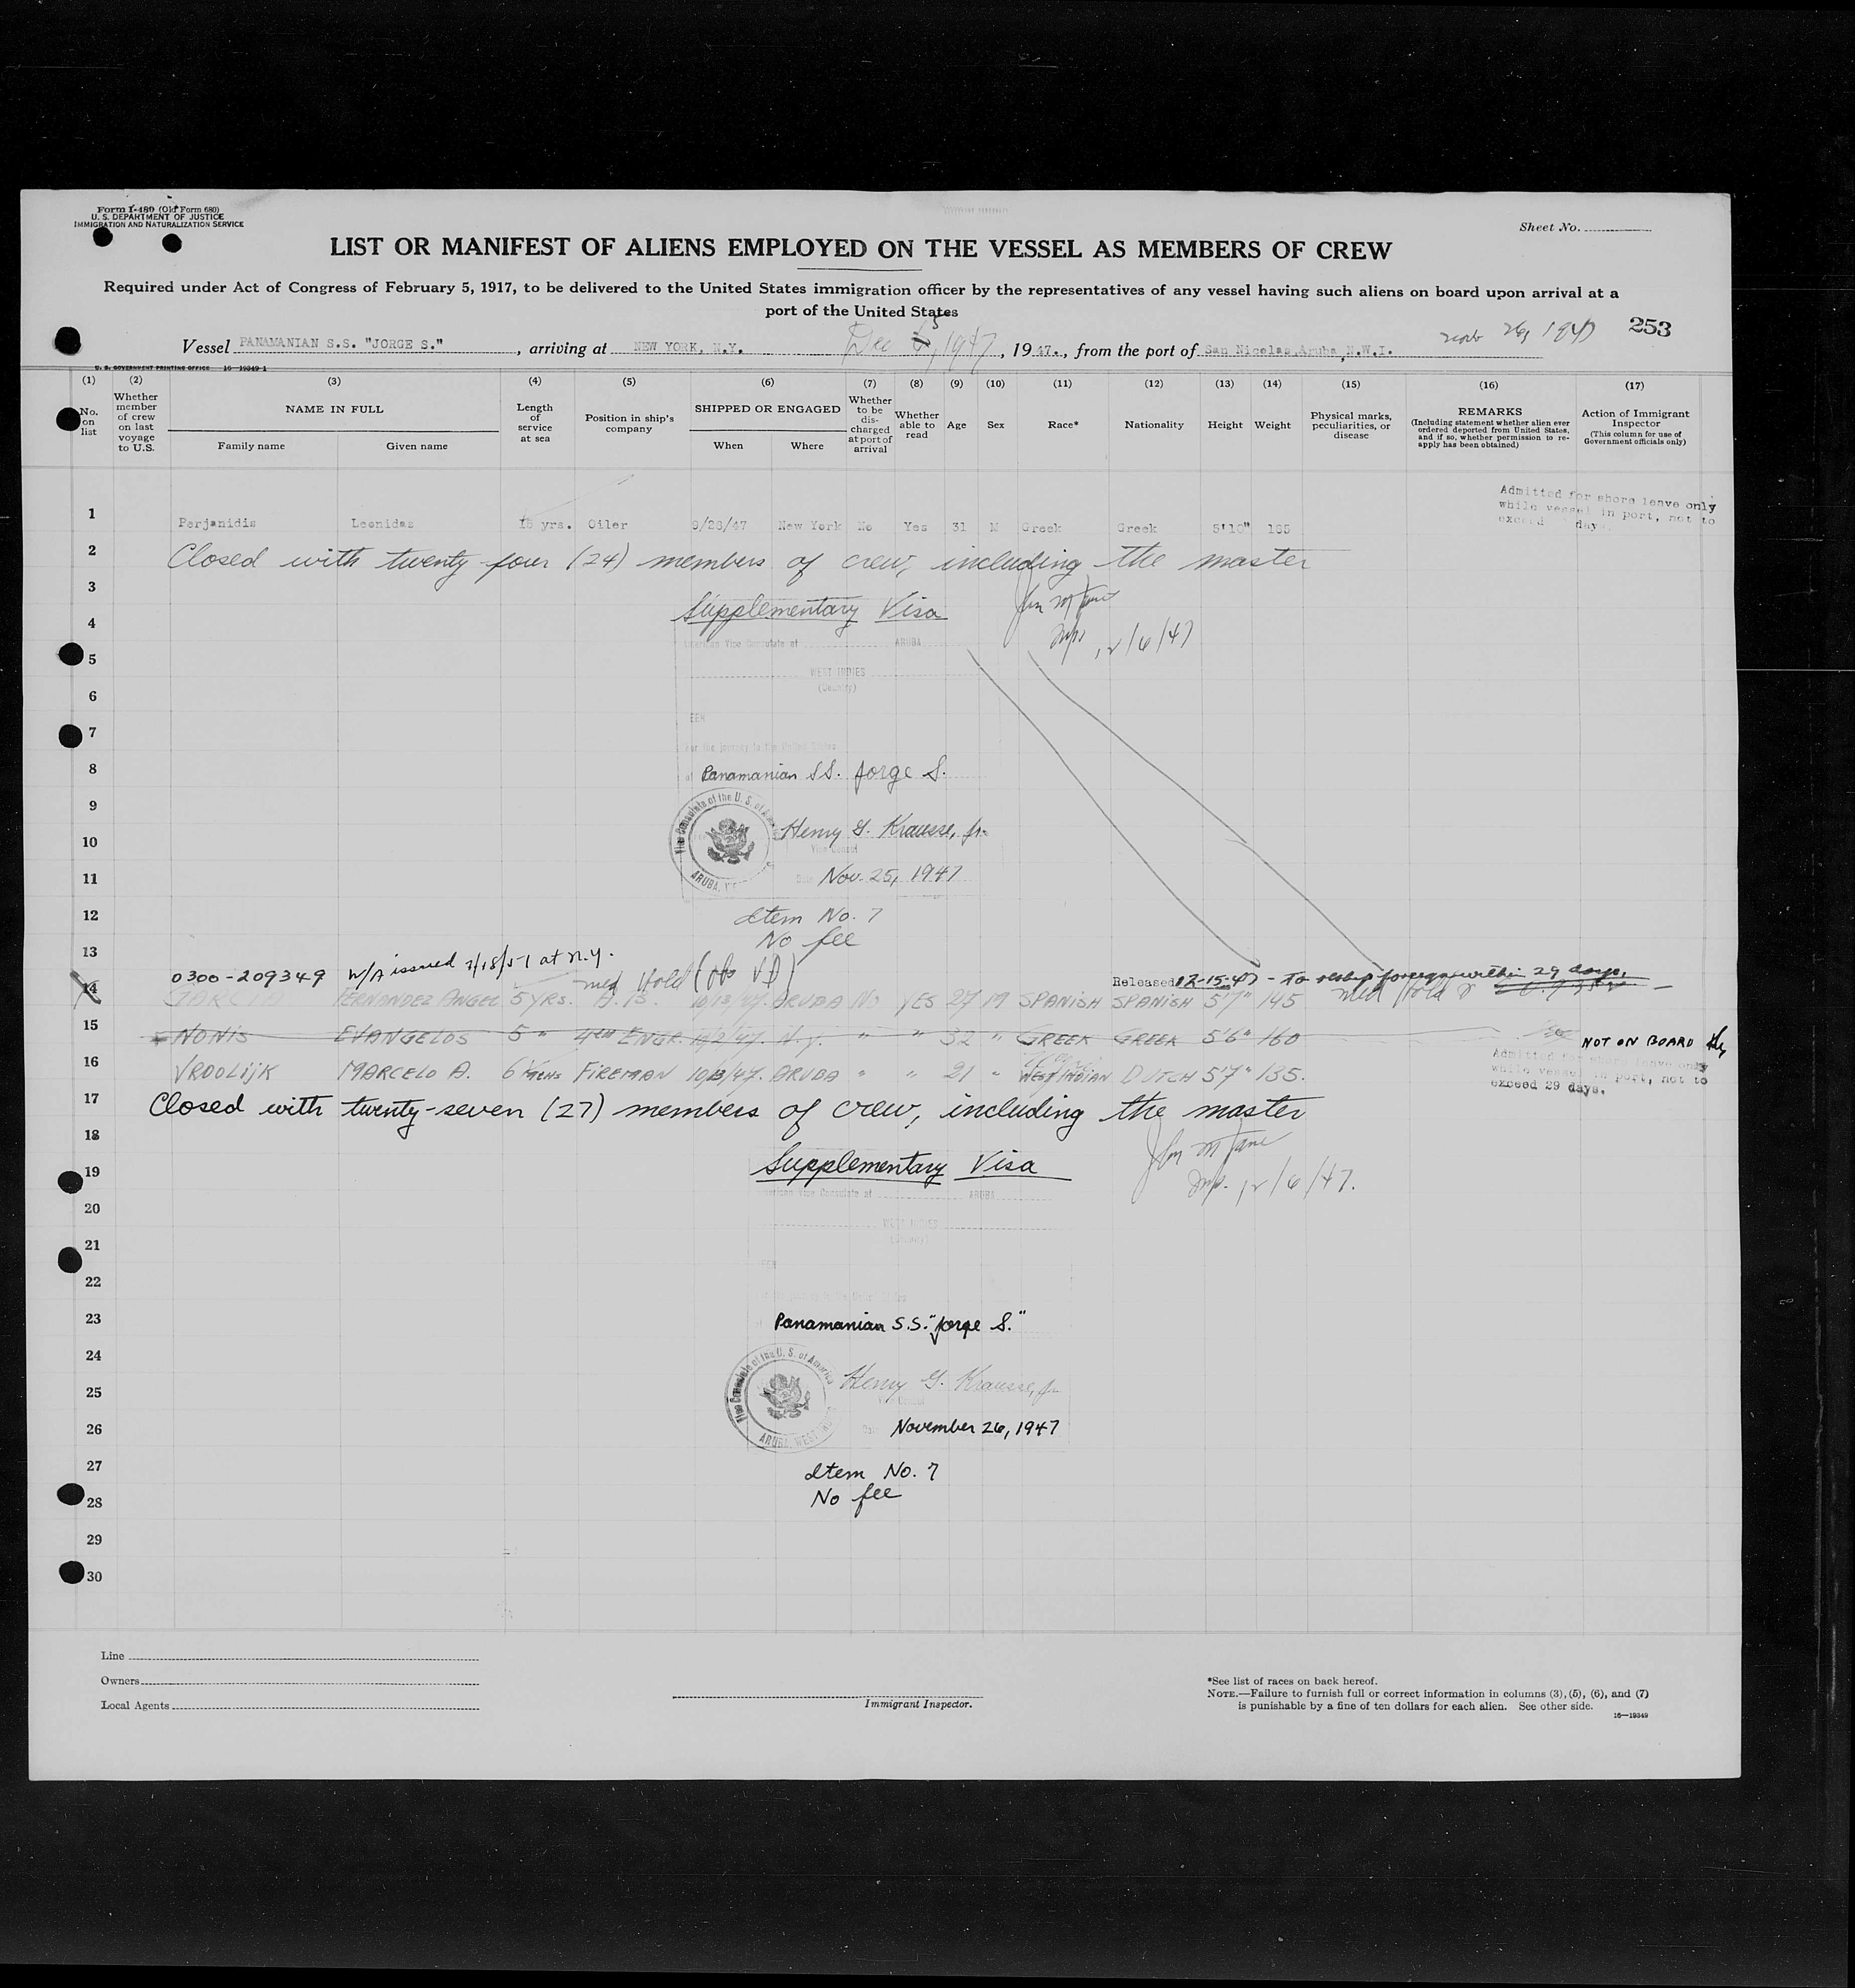 Form I-480 (Old Form 680)
U. S. DEPARTMENT OF JUSTICE
IMMIGRATION AND NATURALIZATION SERVICE
Sheet No.
LIST OR MANIFEST OF ALIENS EMPLOYED ON THE VESSEL AS MEMBERS OF CREW
Required under Act of Congress of February 5, 1917, to be delivered to the United States immigration officer by the representatives of any vessel having such aliens on board upon arrival at a
port of the United States
253
Vessel PANAMANIAN S.S. "JORGE S." , arriving at NEW YORK, N.Y. Dec 1947 , 19 47., from the port of San Nicolas Aruba, N.W.I. 26, 1947
U. S. GOVERNMENT PRINTING OFFICE 16—19349-1
(1) (2) (3) (4) (5) (6) (7) (8) (9) (10) (11) (12) (13) (14) (15) (16) (17)
No. on list
Whether member of crew on last voyage to U.S.
NAME IN FULL
Family name Given name
Length of service at sea
Position in ship's company
SHIPPED OR ENGAGED
When Where
Whether to be discharged at port of arrival
Whether able to read
Age
Sex
Race*
Nationality
Height
Weight
Physical marks, peculiarities, or disease
REMARKS
(Including statement whether alien ever ordered deported from United States, and if so, whether permission to reapply has been obtained)
Action of Immigrant Inspector
(This column for use of Government officials only)
Admitted for shore leave only
while vessel in port, not to
exceed days
1 Perjanidis Leonidas 15 yrs. Oiler 9/26/47 New York No Yes 31 M Greek Greek 5'10" 165
2 Closed with twenty-four (24) members of crew, including the master
3
Supplementary Visa
4
12/6/47
American Vice Consulate at ARUBA
5
WEST INDIES
(Country)
6
7
For the journey to the United States
8 Panamanian SS. Jorge S.
9
Vice Consulate of the U. S. of America
Henry G. Krausse, Jr.
10
Vice Consul
11 Nov. 25, 1947
ARUBA, W.I.
12 Item No. 7
No fee
13
0300-209349 W/A issued 7/18/51 at N.Y. med Hold
Released 12-15-47 - To reship foreign within 29 days.
14 GARCIA FERNANDEZ ANGEL 5 YRS. A.B. 10/13/47. ARUBA NO YES 27 M SPANISH SPANISH 5'7" 145 med Hold
15 NONIS EVANGELOS 5 " 4TH ENGR. N.Y. " " 32 " GREEK GREEK 5'6" 160 NOT ON BOARD
16 VROOLIJK MARCELO A. 6 MENS FIREMAN 10/13/47. ARUBA " " 21 " WEST INDIAN DUTCH 5'7" 135.
Admitted for shore leave only
while vessel in port, not to
exceed 29 days.
17 Closed with twenty-seven (27) members of crew, including the master
18
19 Supplementary Visa
12/6/47.
American Vice Consulate at ARUBA
20
WEST INDIES
(Country)
21
22
23 Panamanian S.S. "Jorge S."
24
Vice Consulate of the U. S. of America
25 Henry G. Krausse, Jr.
Vice Consul
26 Date November 26, 1947
ARUBA, WEST INDIES
27 Item No. 7
28 No fee
29
30
Line
Owners
Local Agents
Immigrant Inspector.
*See list of races on back hereof.
NOTE.—Failure to furnish full or correct information in columns (3), (5), (6), and (7)
is punishable by a fine of ten dollars for each alien. See other side.
16—19349